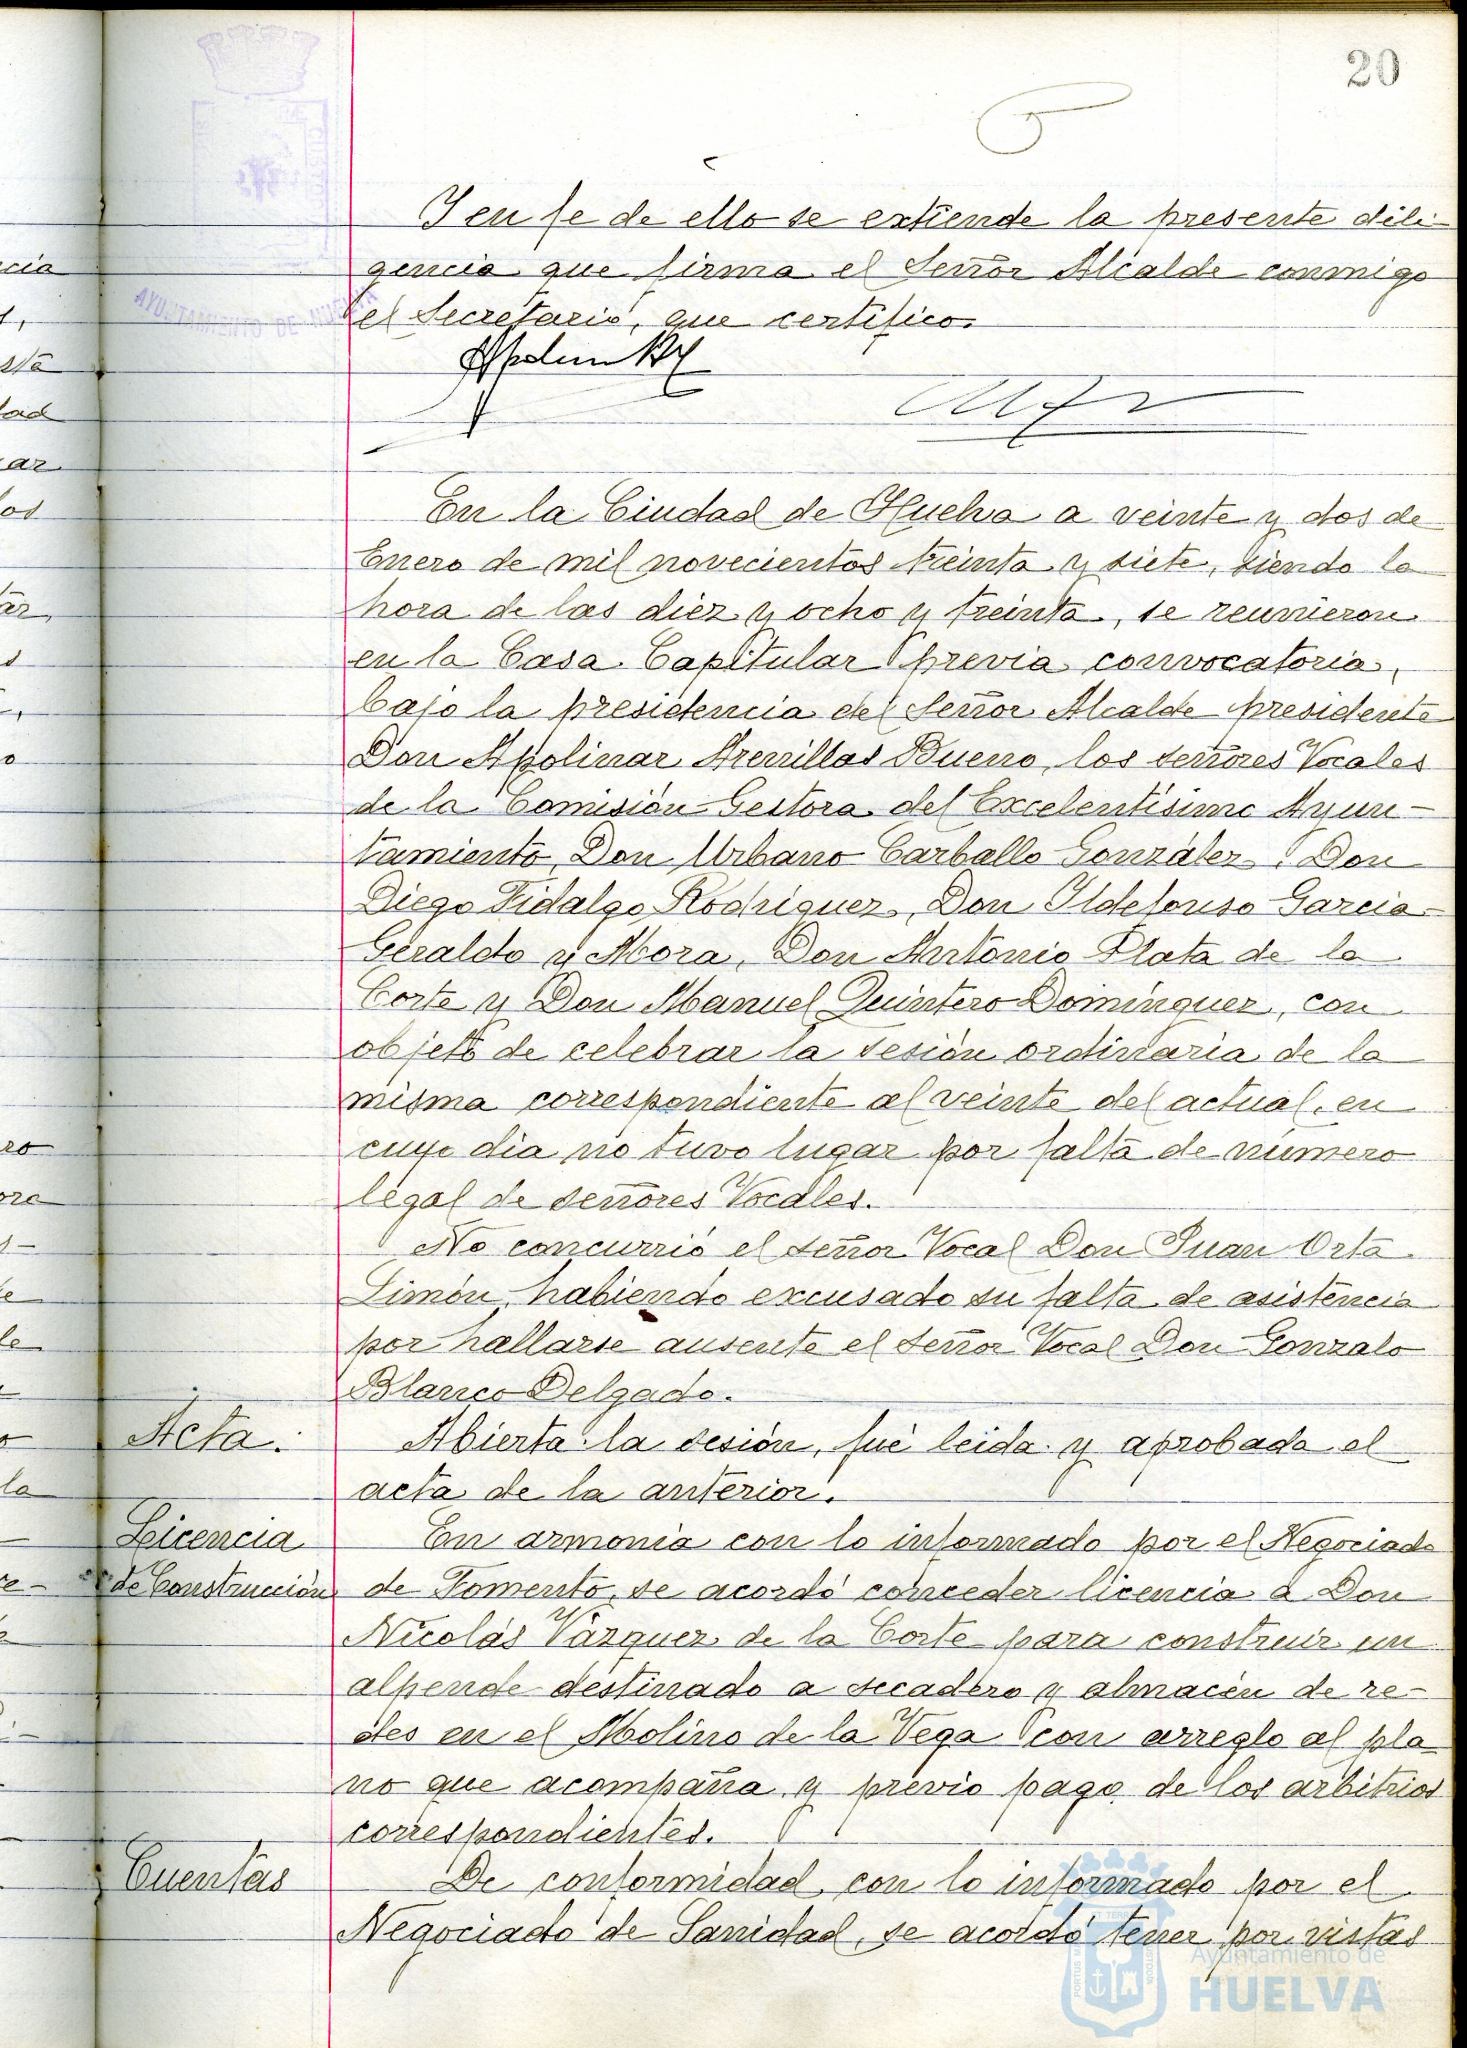 20
Y en fe de ello se extiende la presente dili-
gencia que firma el Señor Alcalde conmigo
el Secretario, que certifico.
AYUNTAMIENTO DE HUELVA
En la Ciudad de Huelva a veinte y dos de
Enero de mil novecientos treinta y siete, siendo la
hora de las diez y ocho y treinta, se reunieron
en la Casa Capitular previa convocatoria,
bajo la presidencia del Señor Alcalde presidente
Don Apolinar Arenillas Bueno, los señores Vocales
de la Comisión Gestora del Excelentísimo Ayun-
tamiento, Don Urbano Carballo González, Don
Diego Fidalgo Rodríguez, Don Ildefonso Garcia-
Geraldo y Mora, Don Antonio Plata de la
Corte y Don Manuel Quintero Domínguez, con
objeto de celebrar la sesión ordinaria de la
misma correspondiente al veinte del actual, en
cuyo dia no tuvo lugar por falta de número
legal de señores Vocales.
No concurrió el señor Vocal Don Juan Orta
Limón, habiendo excusado su falta de asistencia
por hallarse ausente el señor Vocal Don Gonzalo
Blanco Delgado.
Acta.
Abierta la sesión, fué leida y aprobada el
acta de la anterior.
Licencia
de Construcción
En armonia con lo informado por el Negociado
de Fomento, se acordó conceder licencia a Don
Nicolás Vázquez de la Corte para construir un
alpende destinado a secadero y almacén de re-
des en el Molino de la Vega con arreglo al pla-
no que acompaña y previo pago de los arbitrios
correspondientes.
Cuentas
De conformidad con lo informado por el
Negociado de Sanidad, se acordó tener por vistas
Ayuntamiento de
HUELVA